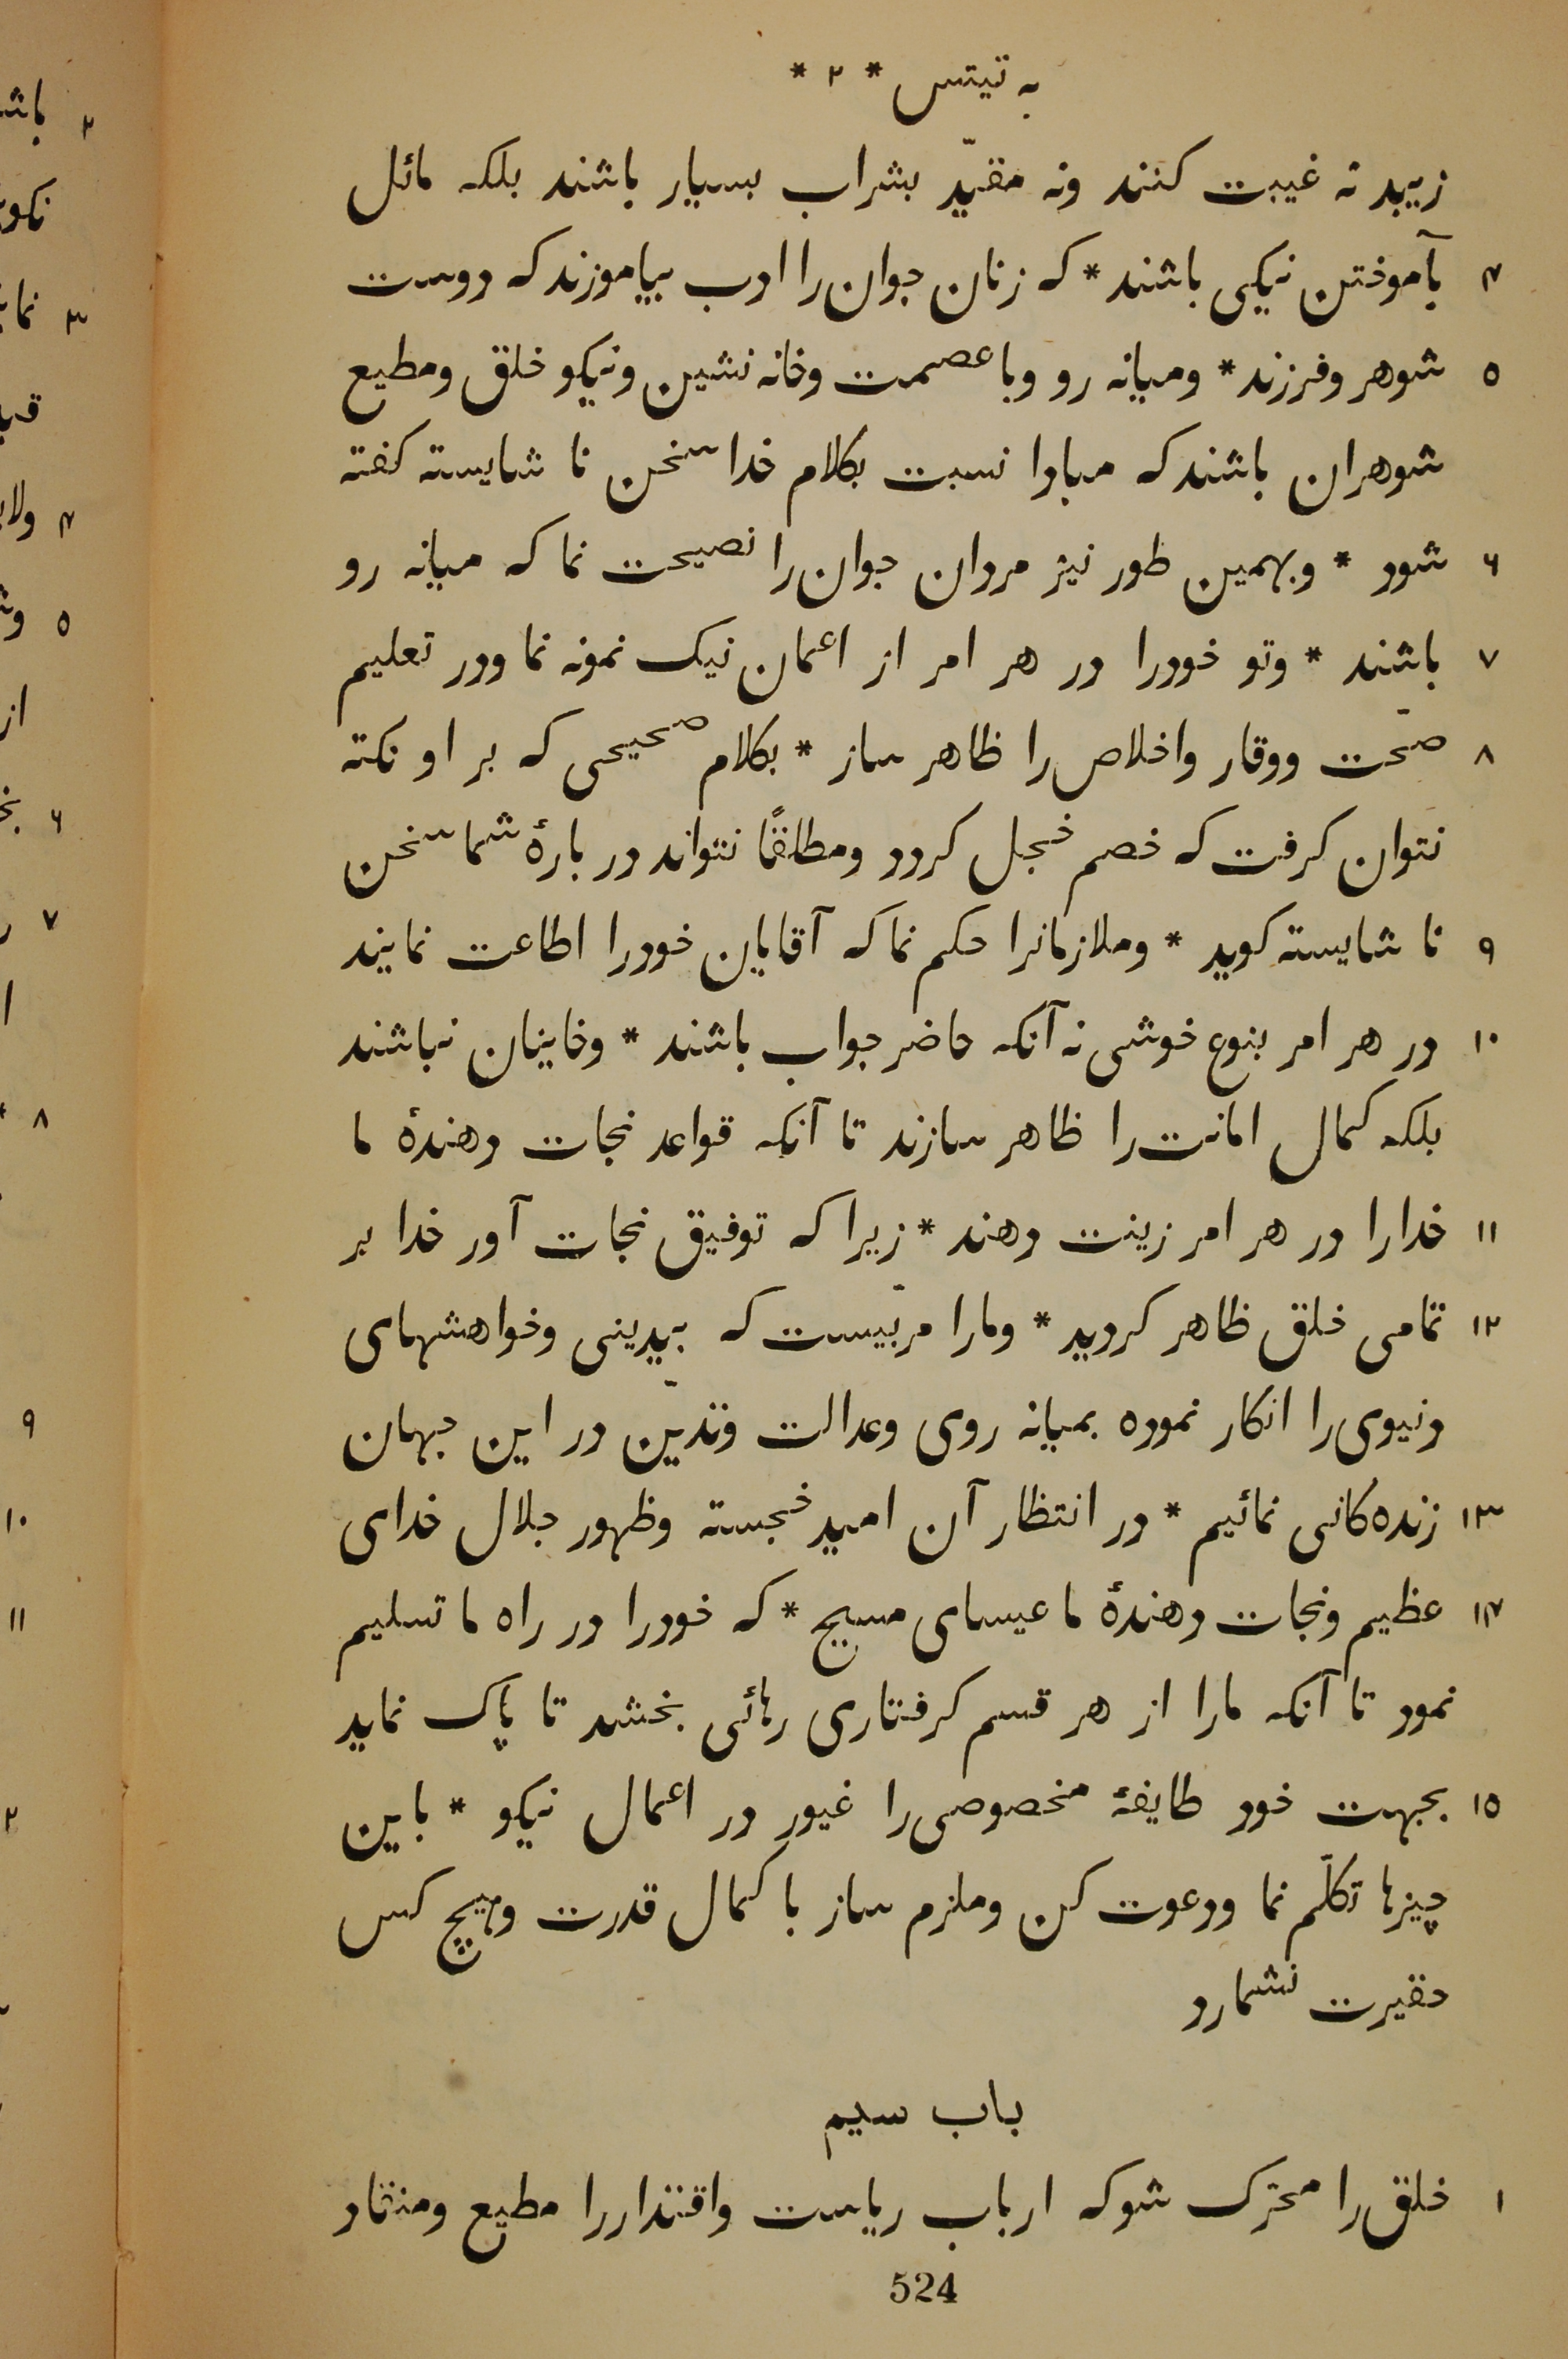 به تیتس * ۲ *
زیبد نه غیبت کنند ونه مقیّد بشراب بسیار باشند بلکه مائل
۴ بآموختن نیکی باشند * که زنان جوان را ادب بیاموزند که دوست
۵ شوهر وفرزند * ومیانه رو وبا عصمت وخانه نشین ونیکو خلق ومطیع
شوهران باشند که مبادا نسبت بکلام خدا سخن نا شایسته کفته
۶ شود * وبهمین طور نیز مردان جوان را نصیحت نما که میانه رو
۷ باشند * وتو خودرا در هر امر از اعمان نیک نمونه نما ودر تعلیم
۸ صحّت ووقار واخلاص را ظاهر ساز * بکلام صحیحی که بر او نکته
نتوان کرفت که خصم خجل کردد ومطلقًا نتواند در بارهٔ شما سخن
۹ نا شایسته کوید * وملازمانرا حکم نما که آقایان خودرا اطاعت نمایند
۱۰ در هر امر بنوع خوشی نه آنکه حاضر جواب باشند * وخاینان نباشند
بلکه کمال امانت را ظاهر سازند تا آنکه قواعد نجات دهندهٔ ما
۱۱ خدارا در هر امر زینت دهند * زیرا که توفیق نجات آور خدا بر
۱۲ تمامی خلق ظاهر کردید * ومارا مربّیست که بیدینی وخواهشهای
دنیوی را انکار نموده بمیانه روی وعدالت وتدیّن در این جهان
۱۳ زنده کانی نمائیم * در انتظار آن امید خجسته وظهور جلال خدای
۱۴ عظیم ونجات دهندهٔ ما عیسای مسیح * که خودرا در راه ما تسلیم
نمود تا آنکه مارا از هر قسم کرفتاری رهائی بخشد تا پاک نماید
۱۵ بجهت خود طایفهٔ مخصوصی را غیور در اعمال نیکو * باین
چیزها تکلّم نما ودعوت کن وملزم ساز با کمال قدرت وهیچ کس
حقیرت نشمارد
باب سیم
۱ خلق را محرّک شو که ارباب ریاست واقتداررا مطیع ومنقاد
524